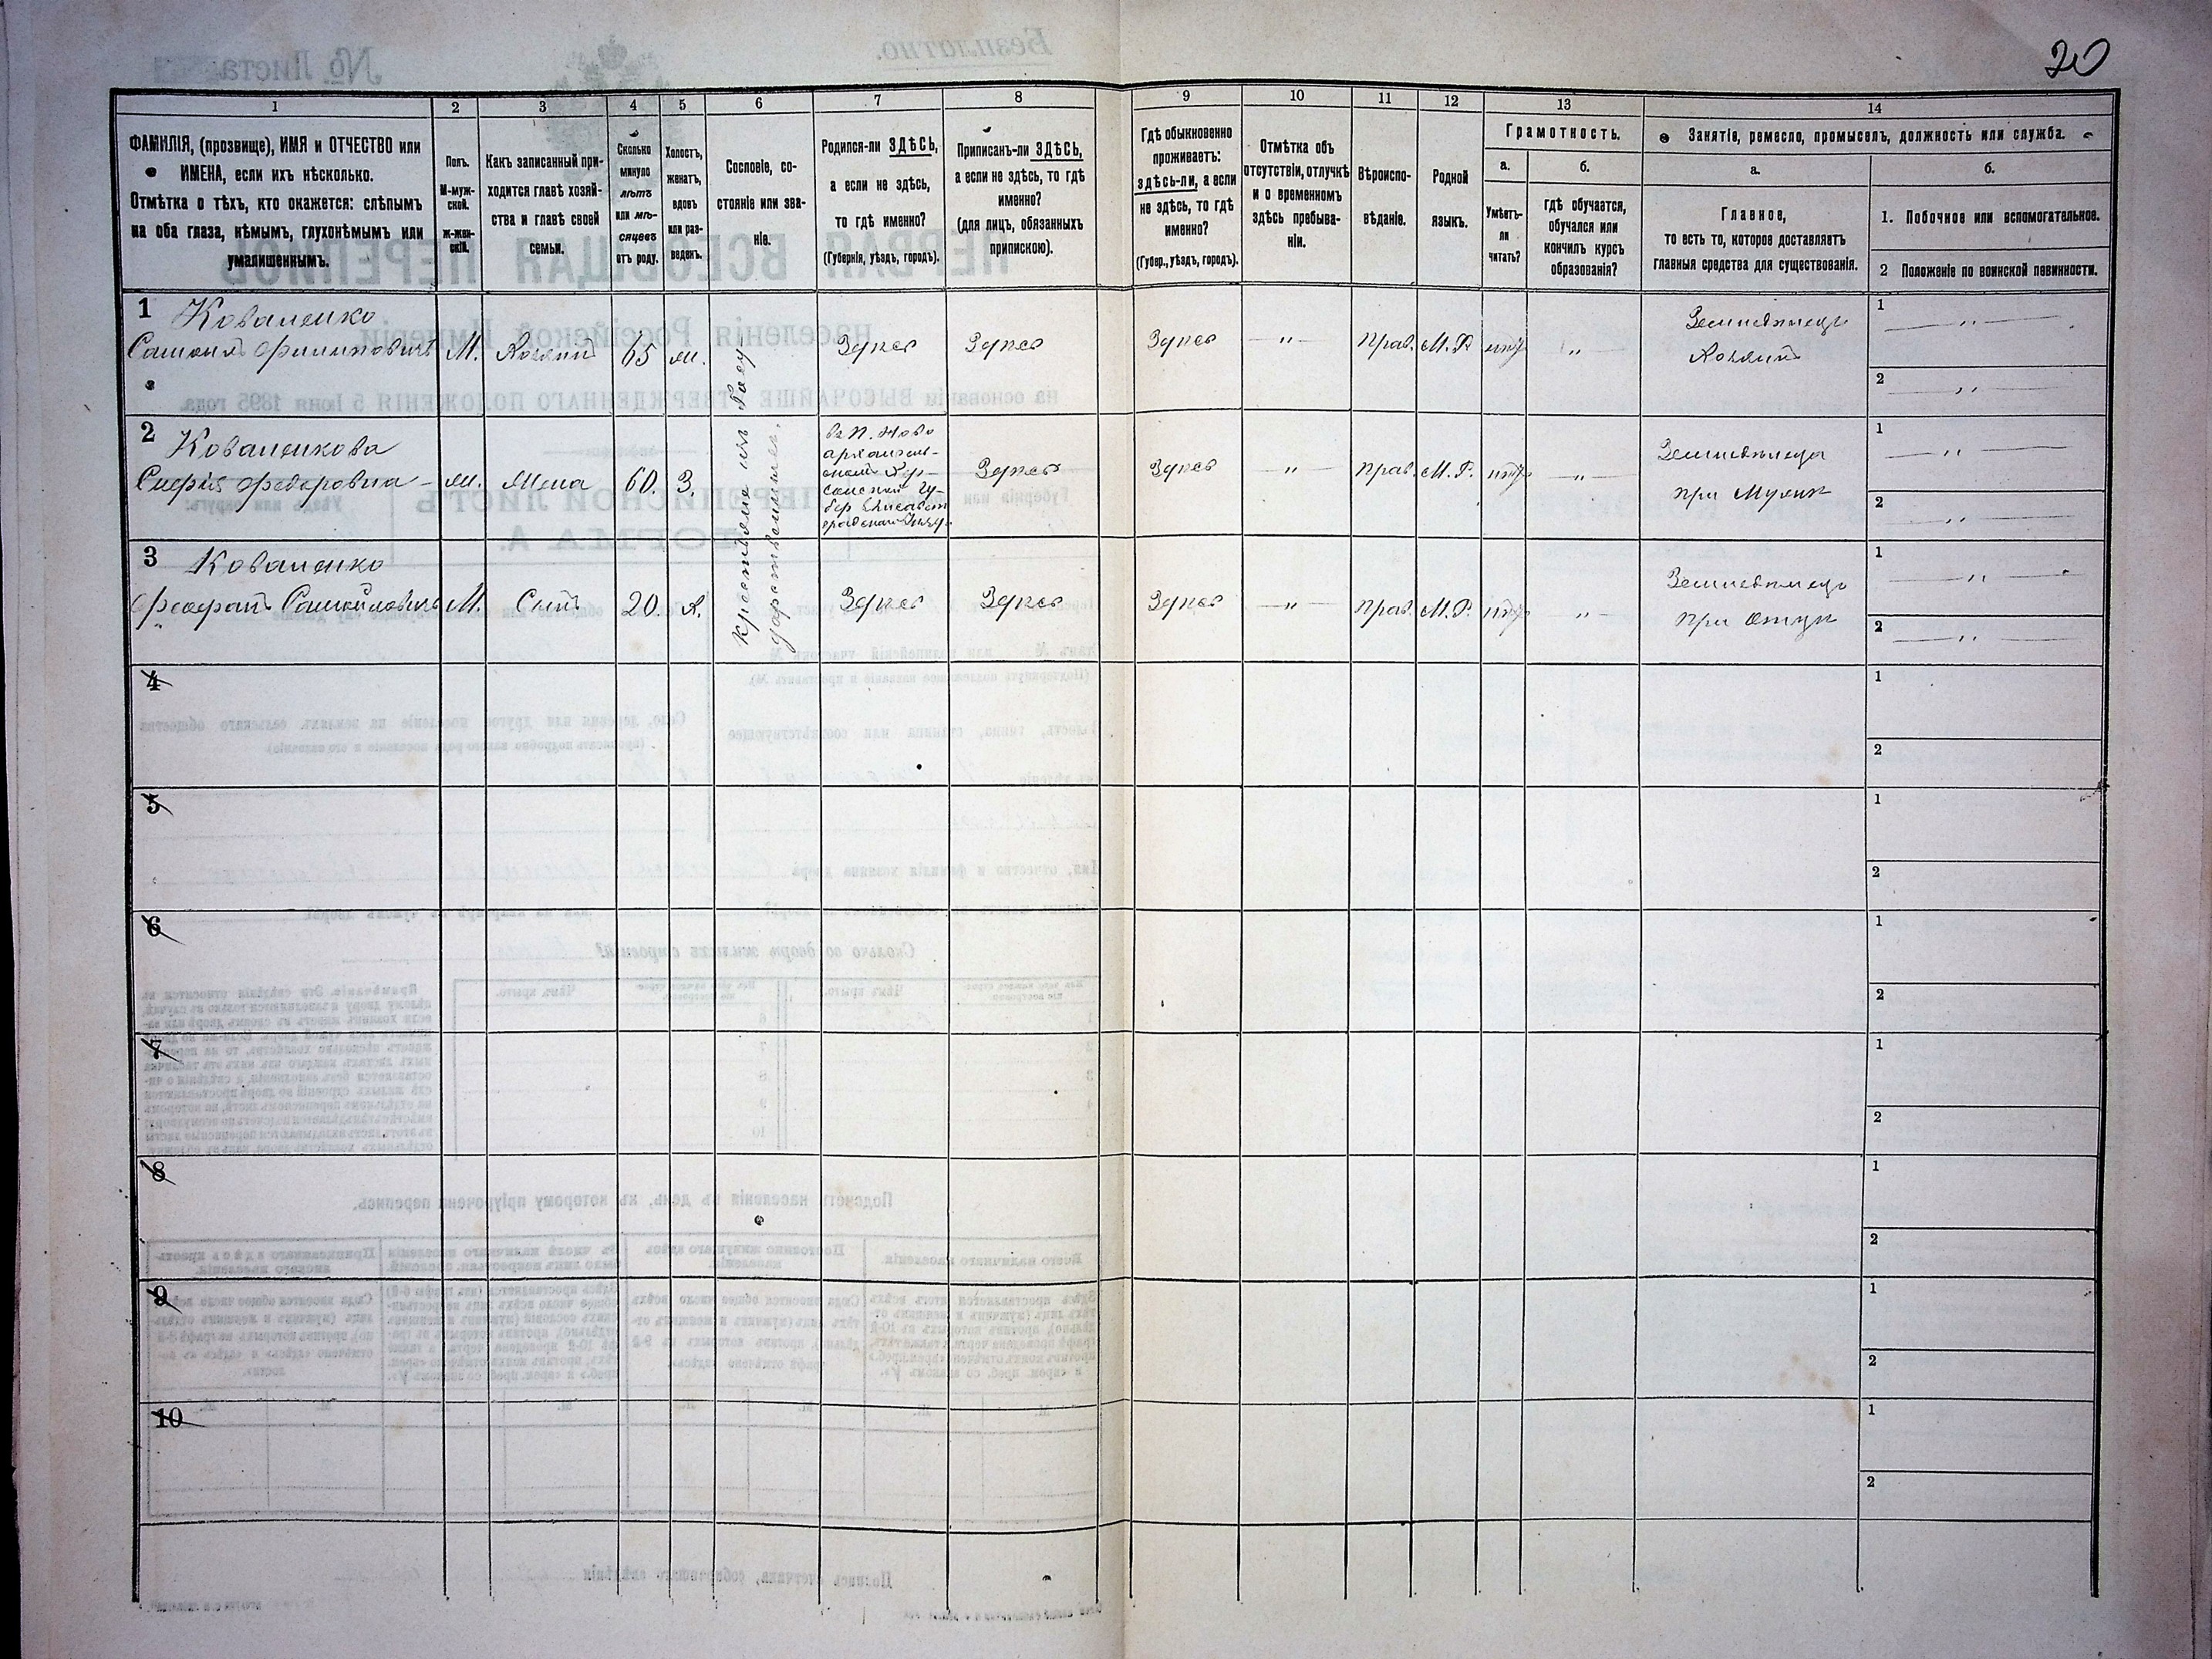 20
1 2 3 4 5 6 7 8 9 10 11 12 13 14
ФАМИЛІЯ, (прозвище), ИМЯ и ОТЧЕСТВО или
ИМЕНА, если ихъ нѣсколько.
Отмѣтка о тѣхъ, кто окажется: слѣпымъ
на оба глаза, нѣмымъ, глухонѣмымъ или
умалишеннымъ.
Полъ.
М-муж-
ской.
Ж-жен-
скій.
Какъ записанный при-
ходится главѣ хозяй-
ства и главѣ своей
семьи.
Сколько
минуло
лѣтъ
или мѣ-
сяцевъ
отъ роду.
Холостъ,
женатъ,
вдовъ
или раз-
веденъ.
Сословіе, со-
стояніе или зва-
ніе.
Родился-ли ЗДѢСЬ,
а если не здѣсь,
то гдѣ именно?
(Губернія, уѣздъ, городъ).
Приписанъ-ли ЗДѢСЬ,
а если не здѣсь, то гдѣ
именно?
(для лицъ, обязанныхъ
припискою).
Гдѣ обыкновенно
проживаетъ:
здѣсь-ли, а если
не здѣсь, то гдѣ
именно?
(Губер., уѣздъ, городъ).
Отмѣтка объ
отсутствіи, отлучкѣ
и о временномъ
здѣсь пребыва-
ніи.
Вѣроиспо-
вѣданіе.
Родной
языкъ.
Грамотность.
а.
Умѣетъ-
ли
читать?
б.
гдѣ обучается,
обучался или
кончилъ курсъ
образованія?
Занятіе, ремесло, промыселъ, должность или служба.
а.
Главное,
то есть то, которое доставляетъ
главныя средства для существованія.
б.
1. Побочное или вспомогательное.
2 Положеніе по воинской повинности.
1 Коваленко
Филиповичъ М. Хозяинъ 65 ж. Здѣсь Здѣсь Здѣсь — " — Прав. М. Р. нѣтъ "
Земледѣлецъ
Хозяинъ
1 — " —
2 — " —
2 Коваленкова
Федоровна ж. Жена 60. З. Здѣсь Здѣсь — " — Прав. М. Р. нѣтъ — " —
въ п. Ново
архангель-
скомъ Хер-
сонской гу-
бер Елисавет
градскаго
Земледѣлеца
при Мужѣ
1 — " —
2 — " —
3 Коваленко
М. Сынъ 20. Х. Здѣсь Здѣсь Здѣсь — " — Прав. М. Р. нѣтъ — " —
Земледѣлецъ
при отцѣ
1 — " —
2 — " —
Крестьяне изъ Госу
дарственныхъ.
4
1
2
5
1
2
6
1
2
7
1
2
8
1
2
9
1
2
10
1
2